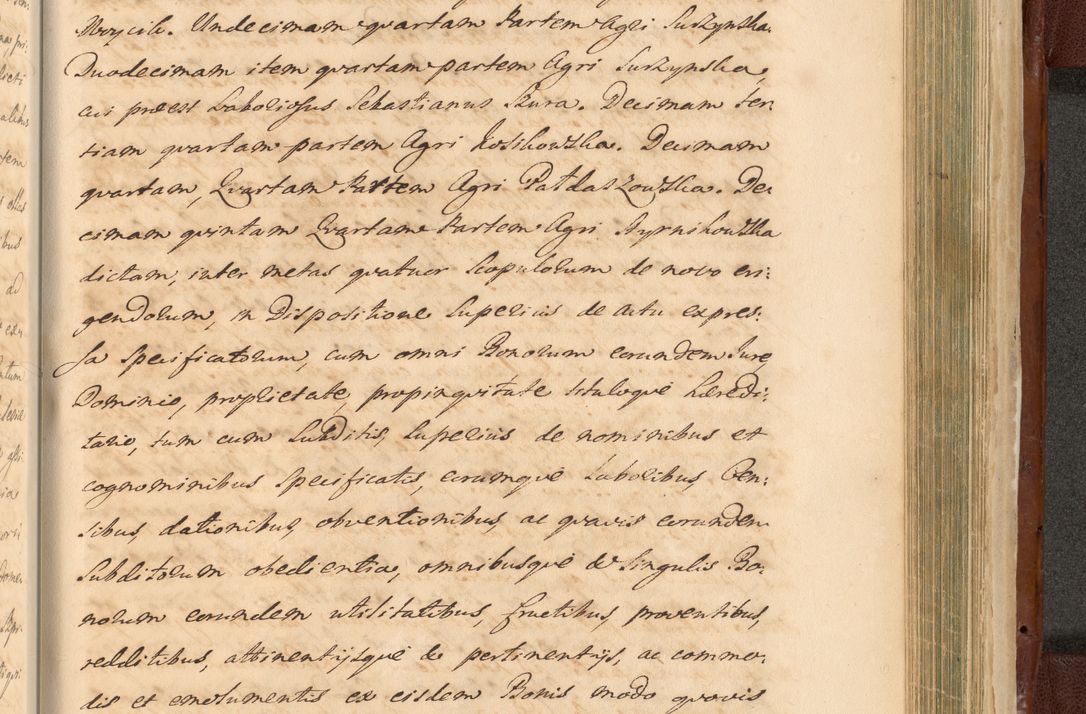 Woycik. Undecimam quartam Partem Agri Surzynska.
Duodecimam item quartam partem Agri Surzynska,
cui præest Laboriosus Sebastianus Szura. Decimam ter
tiam quartam partem Agri Kosikowska. Decimam
quartam, Quartam Partem Agri Pałdaszowska. De
cimam quintam Quartam Partem Agri Styrnikowska
dictam, inter metas quatuor Scopulorum de novo eri:
gendorum, in Dispositione Superius de actu expres:
sa Specificatorum, cum omni Bonorum eorundem Jure,
Dominio, proprietate, propinquitate tituloque hæredi:
tario, tum cum Subditis, Superius de nominibus et
cognominibus Specificatis, eorumque Laboribus, Cen:
sibus, dationibus, obventionibus, ac quavis eorundem
Subditorum obedientia, omnibusque & Singulis Bo:
norum eorundem utilitatibus, fructibus, proventibus,
redditibus, attinentijsque & pertinentijs, ac commo:
dis et emolumentis ex eisdem Bonis modo quovis